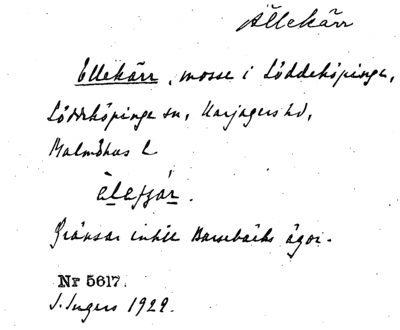 Ällekärr
Ellekärr, mosse i Löddeköpinge,
Löddeköpinge sn, Harjagers hd,
Malmöhus l.
Gränsar intill Barsebäcks ägor.
Nr 5617.
J. Ingers 1929.